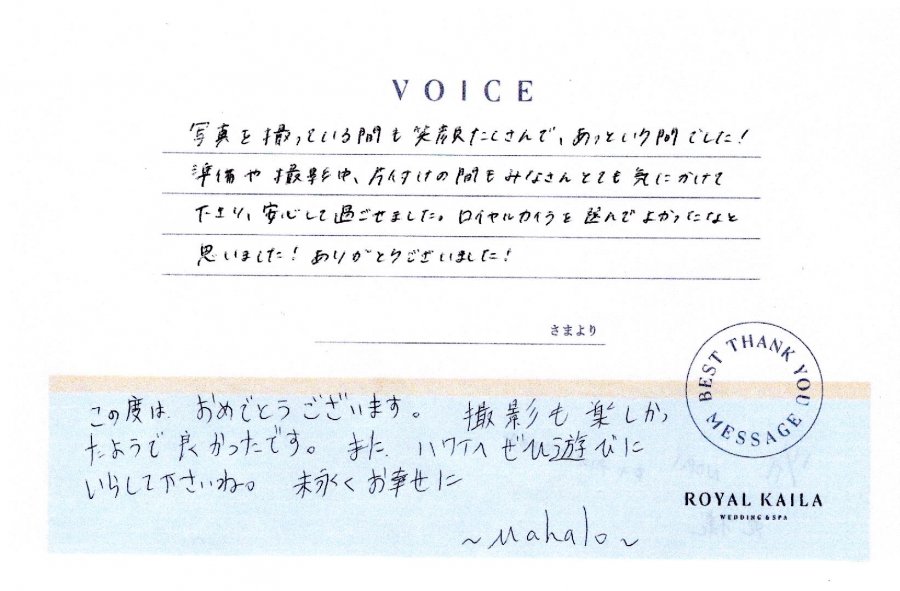 VOICE
写真を撮っている間も笑顔たくさんで、あっという間でした！
準備や撮影中、片付けの間もみなさんとても気にかけて
下さり、安心して過ごせました。ロイヤルカイラを選んでよかったなと
思いました！ありがとうございました！
さまより
BEST THANK YOU MESSAGE
この度は、おめでとうございます。 撮影も楽しかっ
たようで良かったです。また、ハワイへぜひ遊びに
いらして下さいね。 末永くお幸せに
~Mahalo~
ROYAL KAILA
WEDDING & SPA